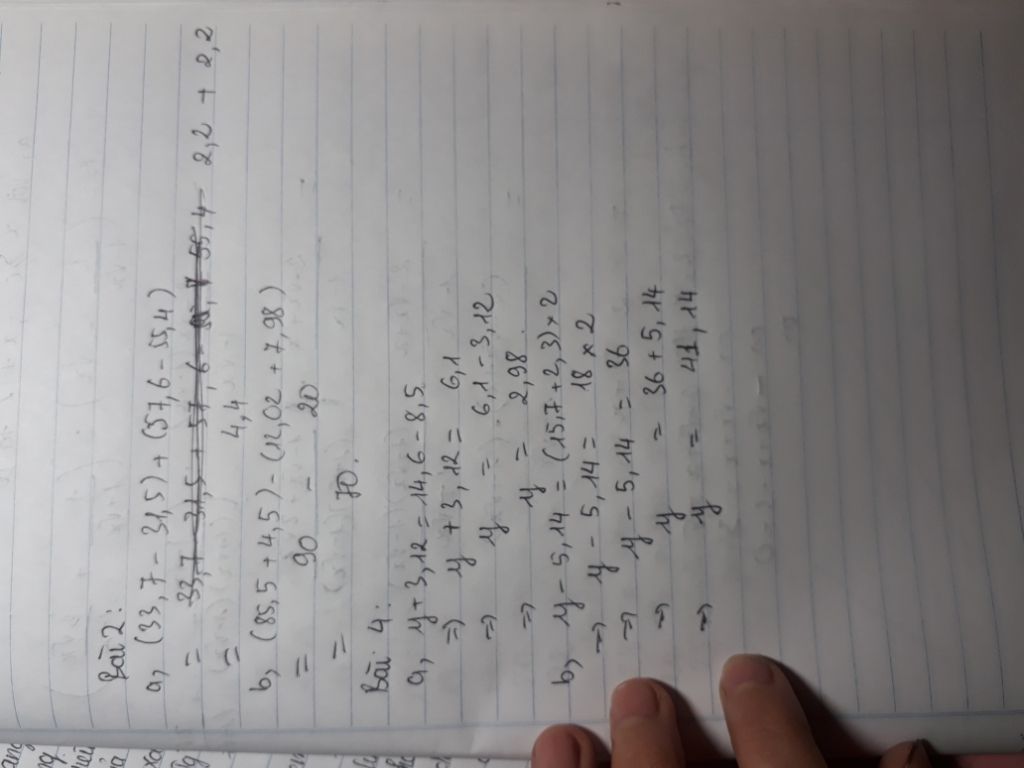 Bài 2:
a, (33,7 - 31,5) + (57,6 - 55,4)
= 2,2 + 2,2
= 4,4
b, (85,5 + 4,5) - (12,02 + 7,98)
= 90 - 20
= 70.
Bài 4:
a, y + 3,12 = 14,6 - 8,5
=> y + 3,12 = 6,1
=> y = 6,1 - 3,12
=> y = 2,98.
b, y - 5,14 = (15,7 + 2,3) x 2
=> y - 5,14 = 18 x 2
=> y - 5,14 = 36
=> y = 36 + 5,14
=> y = 41,14